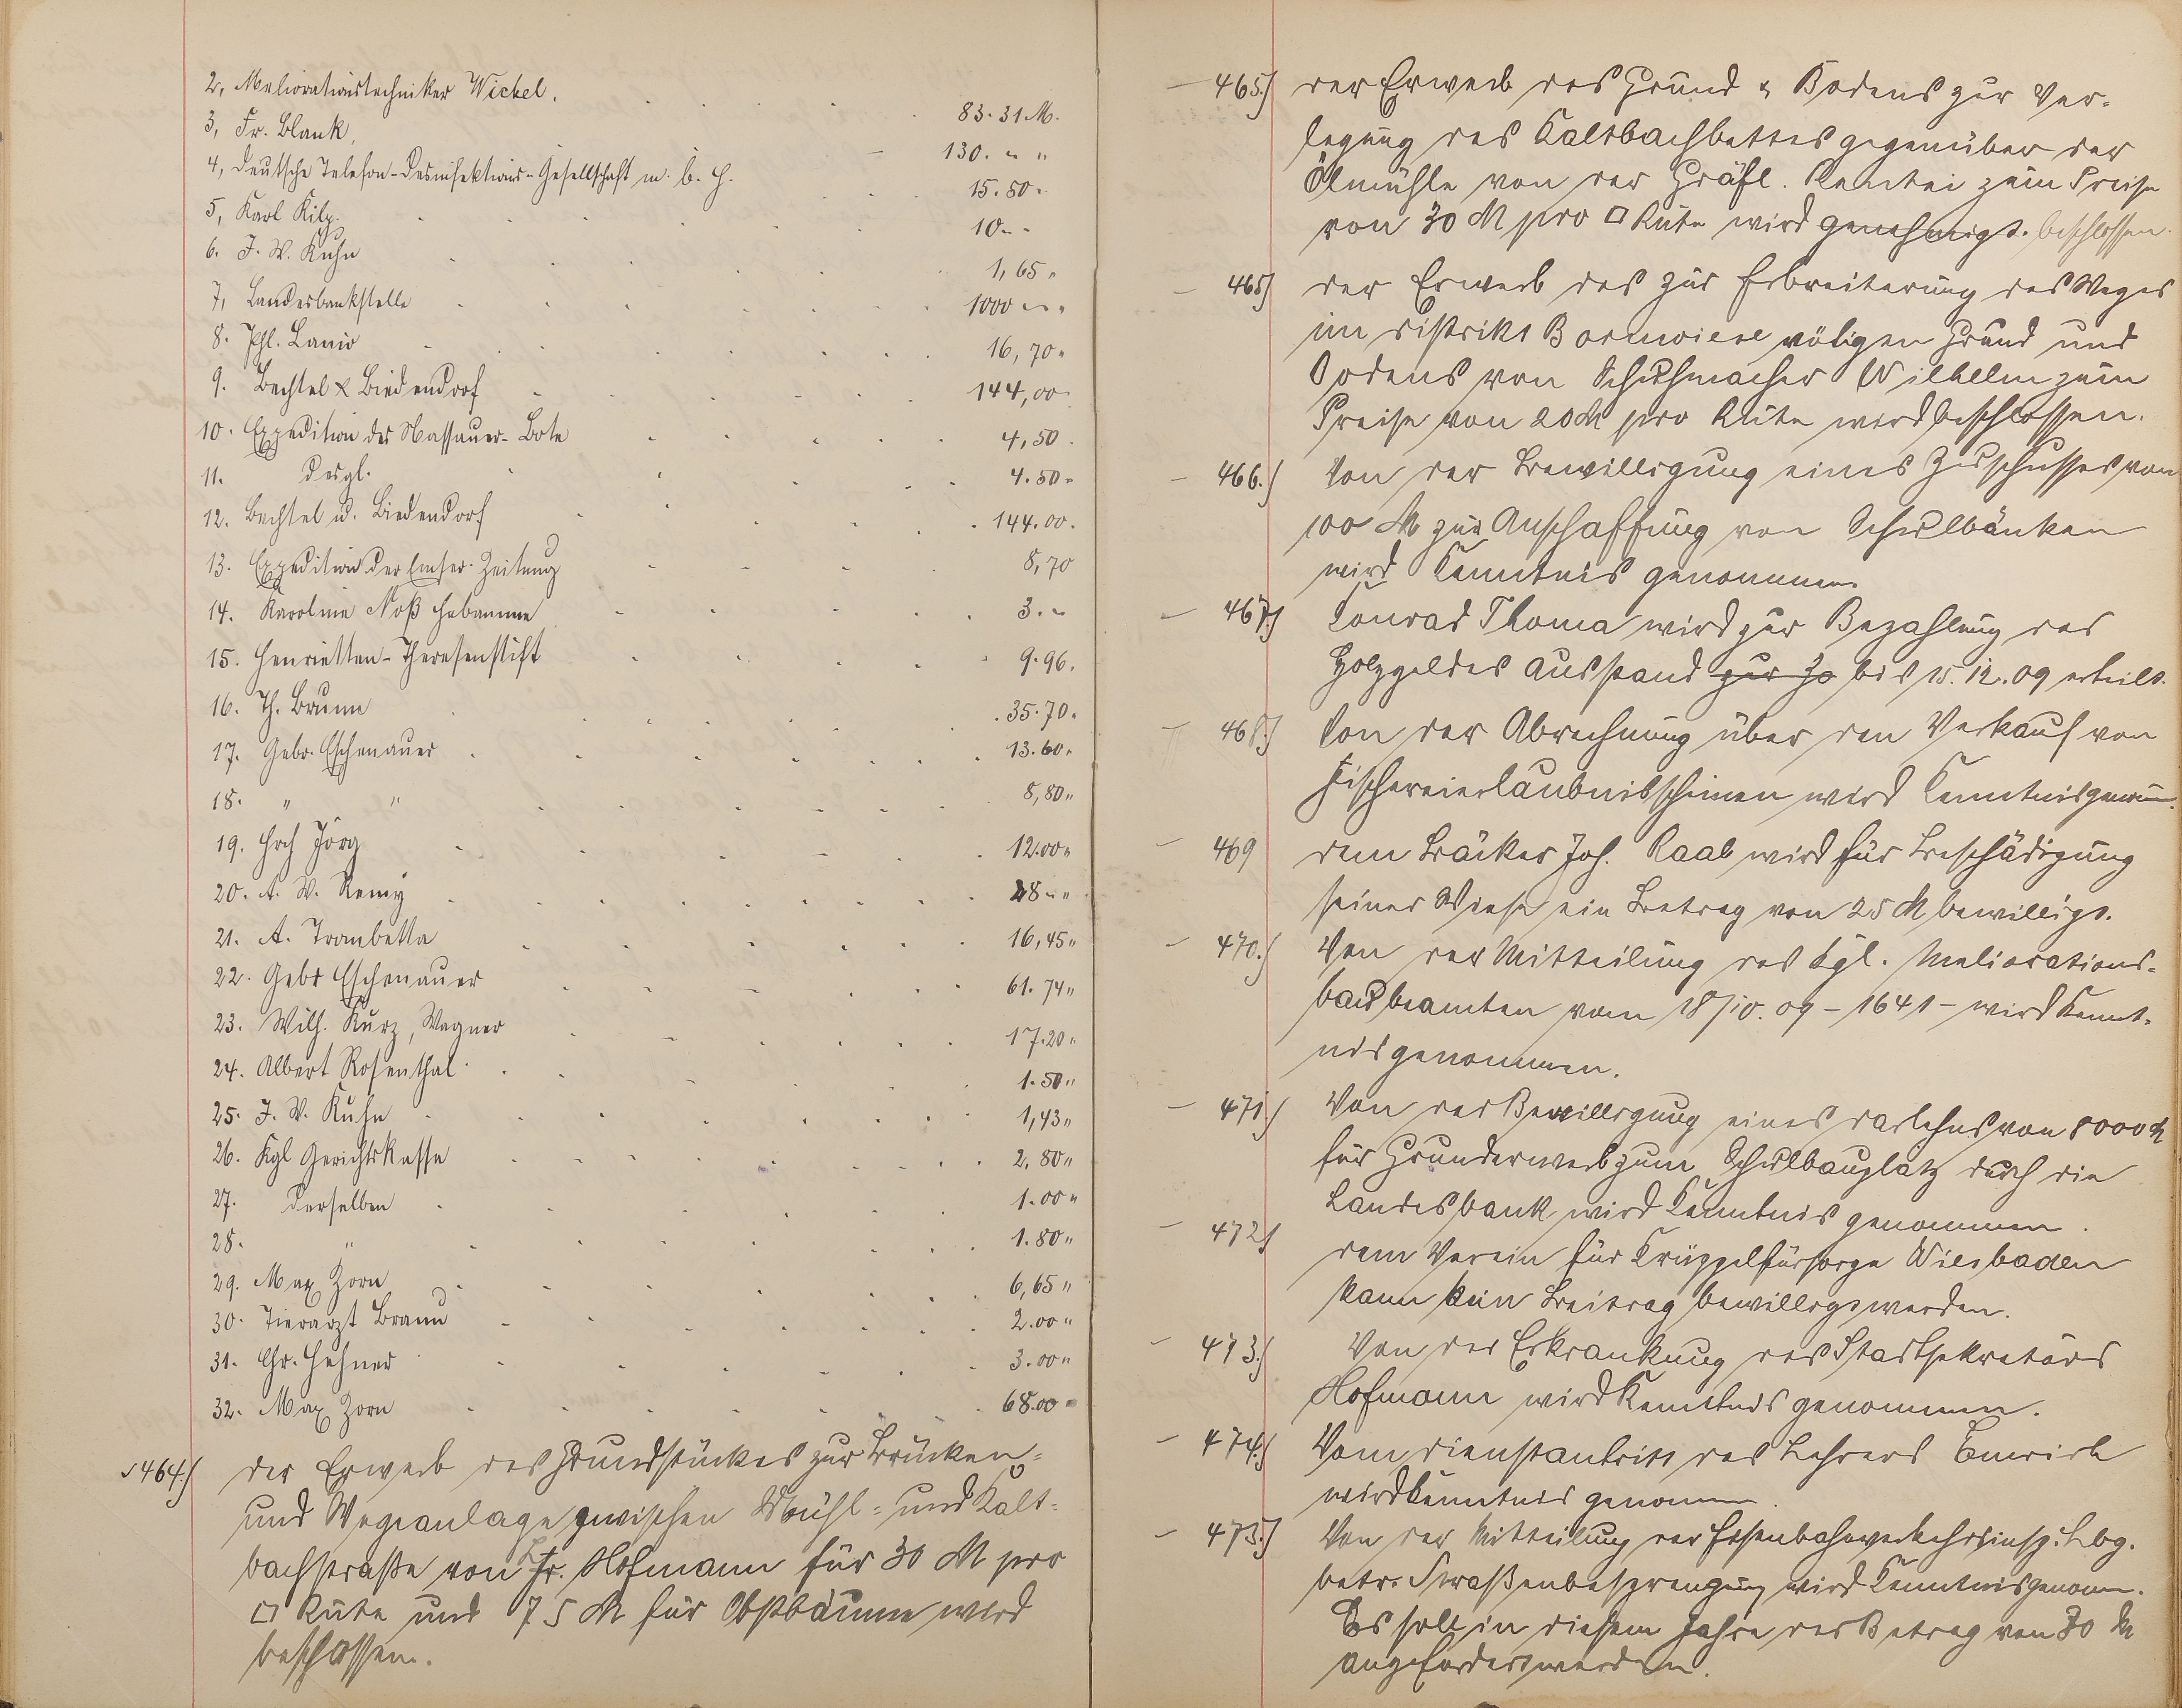 2, Meliorationstechniker Wickel. 83.31 M.
3, Fr. Blank, 130. " "
4, Deutsche Telefon-Desinfektions-Gesellschaft m. b. H. 15.50"
5, Karl Kilp. 10. -
6. J. W. Kuhn 1,65 "
7, Landesbankstelle 1000 " "
8. Phl. Lanio 16,70 "
9. Bechtel & Biedendorf 144,00
10. Expedition des Nassauer-Bote 4,50
11. Desgl. 4.50 "
12. Bechtel u. Biedendorf 144.00.
13. Expedition der Emser-Zeitung 8,70
14. Karoline Noß Hebamme 3. "
15. Henrietten-Theresenstift 9.96.
16. Th. Brunn 35.70.
17. Gebr. Eschenauer 13.60.
18. " " 8,80 "
19. Hrch Jörg 12.00 "
20. A. W. Remy 28 - "
21. A. Trombetta 16,45 "
22. Gebr Eschenauer 61.74 "
23. Wilh. Kurz, Wagner 17.20 "
24. Albert Rosenthal 1.50 "
25. J. W. Kuhn 1,43 "
26. Kgl Gerichtskasse 2,80 "
27. Derselben 1.00 "
28. " 1.80 "
29. Max Zorn 6,65 "
30. Tierarzt Braun 2.00 "
31. Chr. Hehner 3.00 "
32. Max Zorn 68.00 "
464.) der Erwerb des Grundstückes zur Brücken-
und Wegeanlage zwischen Mühl- und Kalt-
bachstraße von Fr. Hofmann für 30 M pro
□ Rute und 75 M für Obstbäume wird
beschlossen.
465.) der Erwerb des Grund & Bodens zur Ver-
legung des Kaltbachbettes gegenüber der
Ölmühle von der Gräfl. Rentei zum Preise
von 30 M pro □ Rute wird genehmigt. beschlossen.
465) der Erwerb des zur Erbreiterung des Weges
im Distrikt Bornwiese nötigen Grund und
Bodens von Schuhmacher Wilhelm zum
Preise von 20 M pro Rute wird beschlossen.
466.) Von der Bewilligung eines Zuschusses von
100 M zur Anschaffung von Schulbänken
wird Kenntnis genommen.
467.) Konrad Thoma wird zur Bezahlung des
Holzgeldes Ausstand zur Za bis 15.12.09 erteilt.
468.) Von der Abrechnung über den Verkauf von
Fischereierlaubnisscheinen wird Kenntnis genom.
469 dem Bäcker Joh. Raab wird für Beschädigung
seiner Wiese ein Betrag von 25 M bewilligt.
470.) Von der Mitteilung des Kgl. Meliorations-
baubeamten vom 18/10. 09 - 1641 - wird Kennt-
nis genommen.
471.) Von der Bewilligung eines Darlehns von 8000 M
für Grunderwerb zum Schulbauplatz durch die
Landesbank wird Kenntnis genommen.
472) dem Verein für Krüppelfürsorge Wiesbaden
kann kein Beitrag bewilligt werden.
473.) Von der Erkrankung des Stadtsekretärs
Hofmann wird Kenntnis genommen.
474.) Vom Dienstantritt des Lehrers Emrich
wird Kenntnis genomm.
475.) Von der Mitteilung der Eisenbahnverkehrsinsp. Lbg.
betr. Straßenbesprengung wird Kenntnis genomm.
Es soll in diesem Jahre der Betrag von 30 M
angefordert werden.